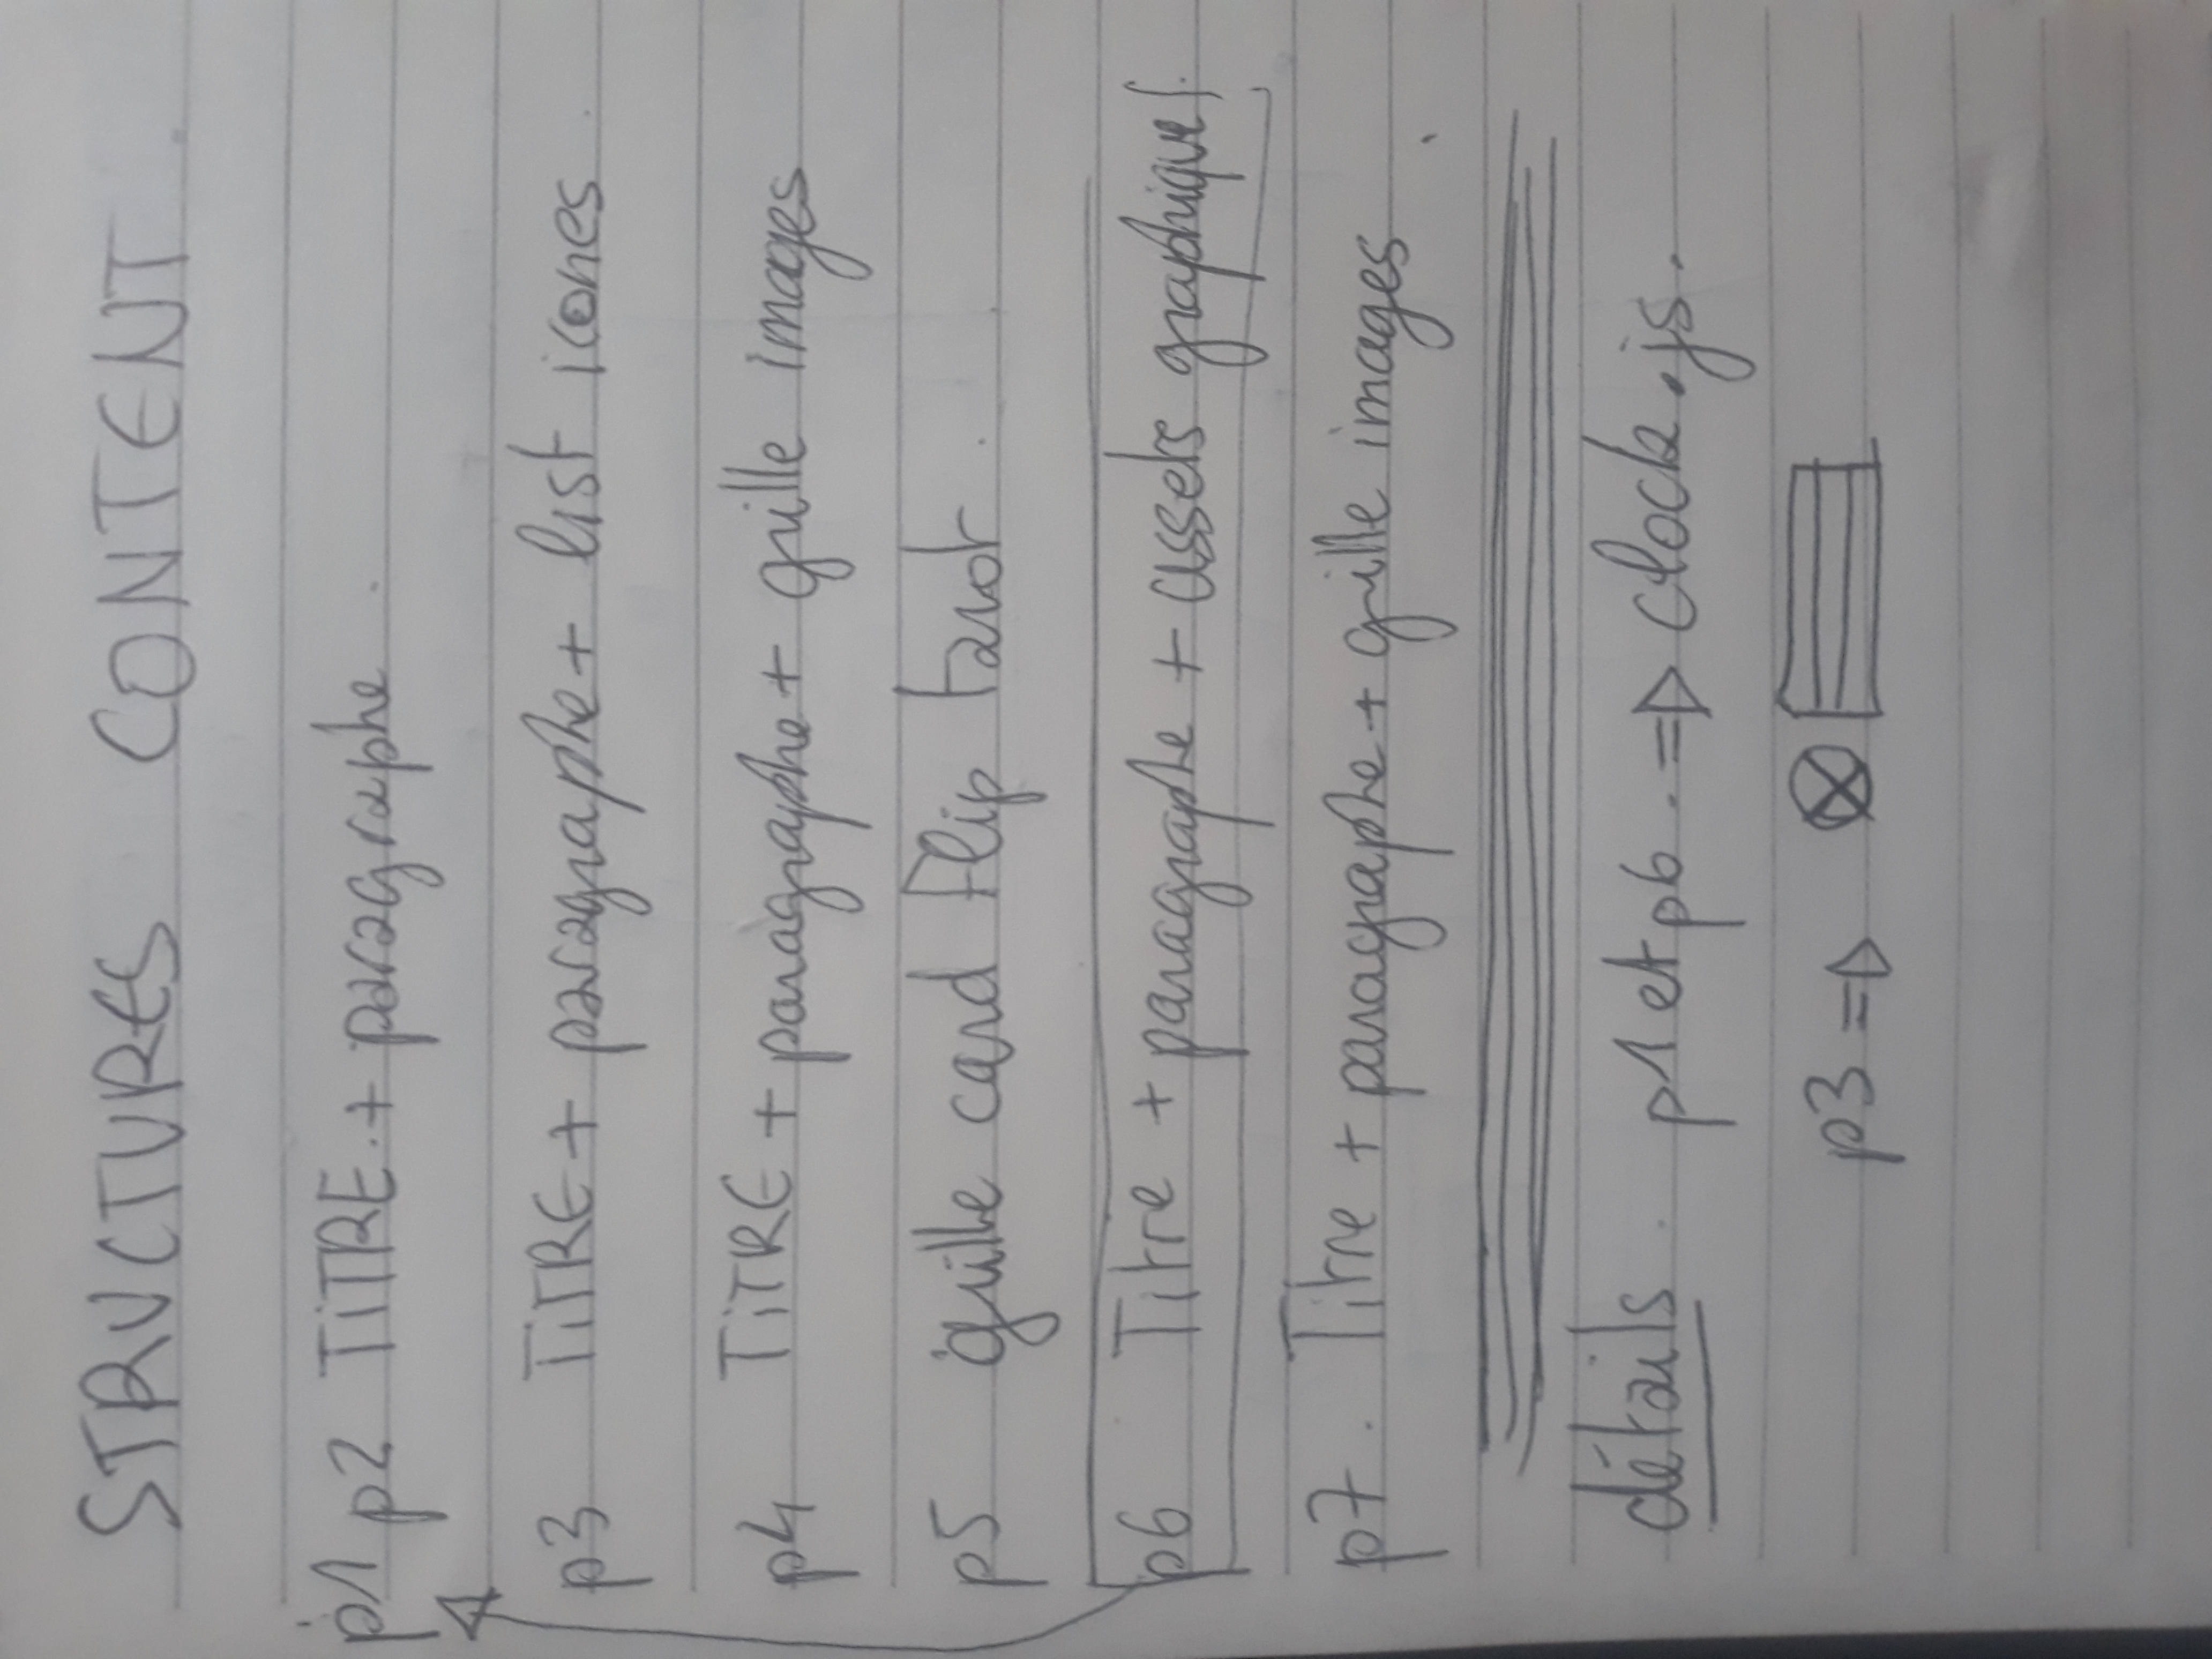 STRUCTURES CONTENT
p1 p2 TiTRE + paragraphe
p3 TiTRE + paragraphe + list icones
p4 TiTRE + paragraphe + grille images
p5 grille card Flip tarot
p6 Titre + paragraphe + assets graphiques
p7. Titre + paragraphe + grille images
détails p1 et p6 => clock.js.
p3 =>